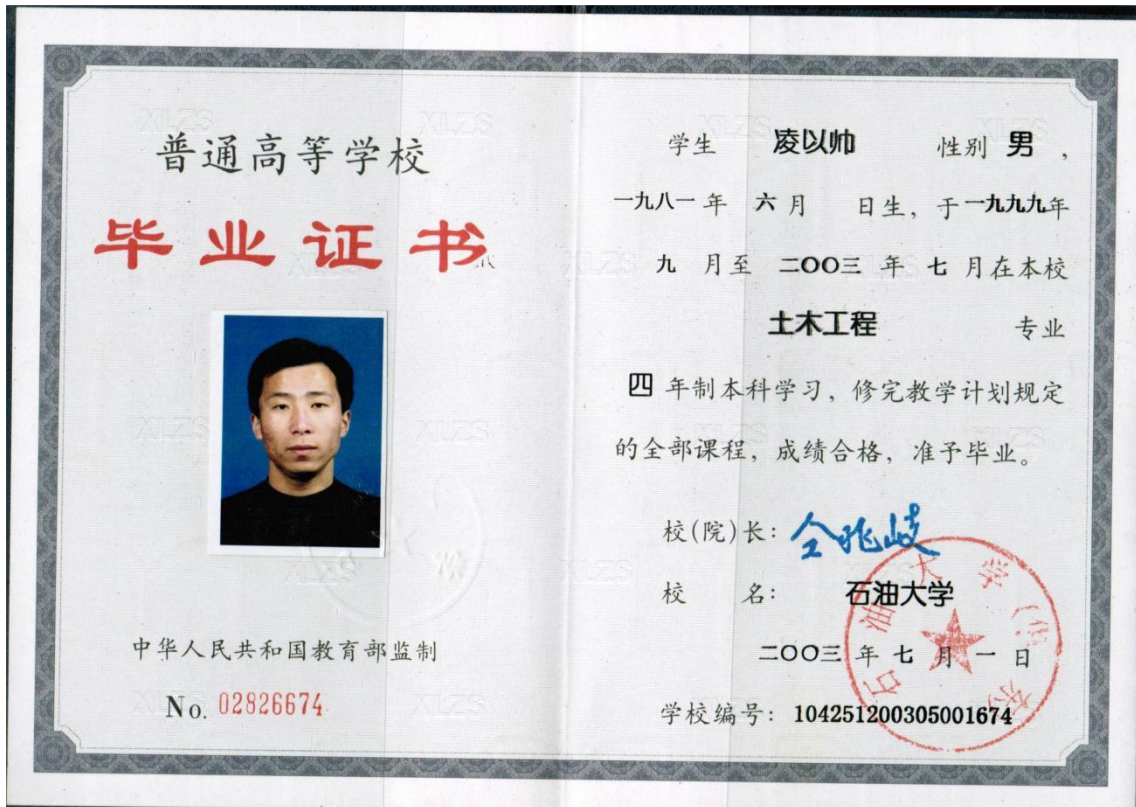 普通高等学校
毕业证书
中华人民共和国教育部监制
No. 02826674
学生 凌以帅 性别 男，
一九八一年 六月 日生，于一九九九年
九 月至 二〇〇三 年 七 月在本校
土木工程 专业
四 年制本科学习，修完教学计划规定
的全部课程，成绩合格，准予毕业。
校(院)长：仝兆岐
校 名：石油大学
二〇〇三 年 七 月 一 日
学校编号：104251200305001674
石油大学(华东)
XLZS